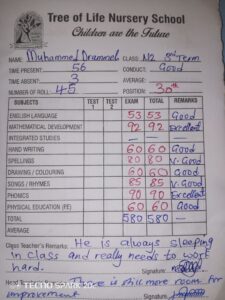 Tree of Life Nursery School
Children are the Future
NAME: Muhammed Drammeh CLASS: N2 2nd Term
TIME PRESENT: 56 CONDUCT: Good
TIME ABSENT: 3 AVERAGE:
NUMBER OF ROLL: 45 POSITION: 30th
SUBJECTS TEST 1 TEST 2 EXAM TOTAL REMARKS
ENGLISH LANGUAGE 53 53 Good
MATHEMATICAL DEVELOPMENT 92 92 Excellent
INTEGRATED STUDIES — — —
HAND WRITING 60 60 Good
SPELLINGS 80 80 V. Good
DRAWING / COLOURING 60 60 Good
SONGS / RHYMES 85 85 V. Good
PHONICS 90 90 Excellent
PHYSICAL EDUCATION (PE) 60 60 Good
TOTAL 580 580 —
AVERAGE
Class Teacher's Remarks: He is always sleeping
in class and really needs to work
hard. Signature:
There is still more room for
improvement Signature:
TECNO SPARK